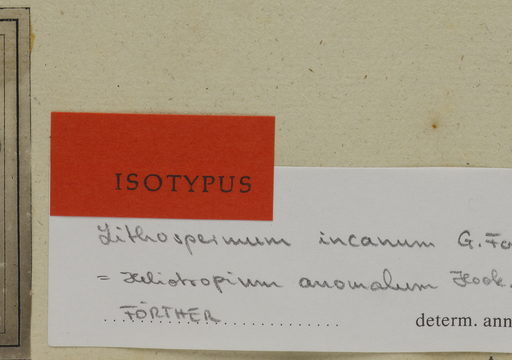 ISOTYPUS
Lithospermum incanum G. Fo
= Heliotropium anomalum Hook.
FÖRTHER determ. ann